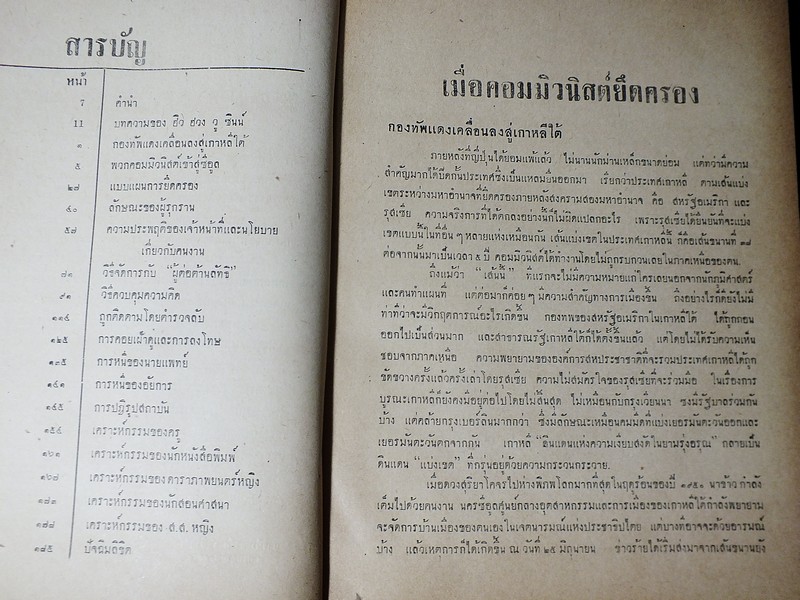 สารบัญ
หน้า
7 คำนำ
11 บทความของ ฮิว ฮวง วู ซินน์
๑ กองทัพแดงเคลื่อนลงสู่เกาหลีใต้
๕ พวกคอมมิวนิสต์เข้าสู่ซูอูล
๒๗ แบบแผนการยึดครอง
๔๐ ลักษณะของผู้รุกราน
๕๗ ความประพฤติของเจ้าหน้าที่และนโยบาย
เกี่ยวกับคนงาน
๗๑ วิธีจัดการกับ "ผู้ต่อต้านลัทธิ"
๙๑ วิธีควบคุมความคิด
๑๑๔ ถูกติดตามโดยตำรวจลับ
๑๒๕ การคอยเฝ้าดูและการลงโทษ
๑๓๕ การหนีของนายแพทย์
๑๔๑ การหนีของอัยการ
๑๔๕ การปฏิรูปสถาบัน
๑๕๔ เคราะห์กรรมของครู
๑๖๑ เคราะห์กรรมของนักหนังสือพิมพ์
๑๖๘ เคราะห์กรรมของดาราภาพยนตร์หญิง
๑๗๓ เคราะห์กรรมของนักสอนศาสนา
๑๗๘ เคราะห์กรรมของ ส.ส. หญิง
๑๘๕ ปัจฉิมลิขิต
เมื่อคอมมิวนิสต์ยึดครอง
กองทัพแดงเคลื่อนลงสู่เกาหลีใต้
ภายหลังที่ญี่ปุ่นได้ยอมแพ้แล้ว ไม่นานนักม่านเหล็กขนาดย่อม แต่ทว่ามีความ
สำคัญมากได้ปิดกั้นประเทศซึ่งเป็นแหลมยื่นออกมา เรียกว่าประเทศเกาหลี ตามเส้นแบ่ง
เขตระหว่างมหาอำนาจที่ยึดครองภายหลังสงครามสองมหาอำนาจ คือ สหรัฐอเมริกา และ
รุสเซีย ความจริงการที่ได้ตกลงอย่างนี้ก็ไม่ผิดแปลกอะไร เพราะรุสเซียได้ยืนยันที่จะแบ่ง
เขตแบบนี้ในที่อื่น ๆ หลายแห่งเหมือนกัน เส้นแบ่งเขตในประเทศเกาหลีนี้ ก็คือเส้นขนานที่ ๓๘
ต่อจากนั้นมาเป็นเวลา ๕ ปี คอมมิวนิสต์ได้ทำงานโดยไม่ถูกรบกวนเลยในภาคเหนือของตน.
ถึงแม้ว่า "เส้นนี้" ที่แรกจะไม่มีความหมายแก่ใครเลยนอกจากนักภูมิศาสตร์
และคนทำแผนที่ แต่ต่อมาก็ค่อย ๆ มีความสำคัญทางการเมืองขึ้น ถึงอย่างไรก็ดียังไม่มี
ท่าทีว่าจะมีวิกฤตการณ์อะไรเกิดขึ้น กองทัพของสหรัฐอเมริกาในเกาหลีใต้ ได้ถูกถอน
ออกไปเป็นส่วนมาก และสาธารณรัฐเกาหลีใต้ก็ได้ตั้งขึ้นแล้ว แต่โดยไม่ได้รับความเห็น
ชอบจากภาคเหนือ ความพยายามขององค์การสหประชาชาติที่จะรวมประเทศเกาหลีได้ถูก
ขัดขวางครั้งแล้วครั้งเล่าโดยรุสเซีย ความไม่สมัครใจของรุสเซียที่จะร่วมมือ ในเรื่องการ
บูรณะเกาหลีก็ยังคงมีอยู่ต่อไปโดยไม่สิ้นสุด ไม่เหมือนกับกรุงเวียนนา ซึ่งมีรัฐบาลร่วมกัน
บ้าง แต่คล้ายกรุงเบอร์ลินมากกว่า ซึ่งมีลักษณะเหมือนคมมีดที่แบ่งเยอรมันตะวันออกและ
เยอรมันตะวันตกจากกัน เกาหลี "ดินแดนแห่งความเงียบสงัดในยามรุ่งอรุณ" กลายเป็น
ดินแดน "แบ่งเขต" ที่กรุ่นอยู่ด้วยความกระวนกระวาย.
เมื่อดวงสุริยาโคจรไปห่างพิภพโลกมากที่สุดในฤดูร้อนของปี ๑๙๕๐ นาข้าวกำลัง
เต็มไปด้วยคนงาน นครซูอูลศูนย์กลางอุตสาหกรรมและการเมืองของเกาหลีใต้กำลังพยายาม
จะจัดการบ้านเมืองของตนเองในเจตนารมณ์แห่งประชาธิปไตย แต่บางทีอาจจะด้วยอารมณ์
บ้าง แล้วเหตุการก็ได้เกิดขึ้น ณ วันที่ ๒๕ มิถุนายน ข่าวร้ายได้เริ่มส่งมาจากเส้นขนานยัง